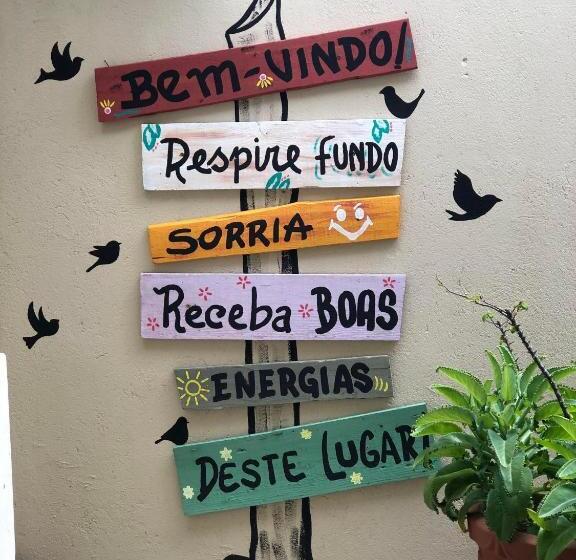 Bem-VINDO!
Respire FUNDO
SORRIA
Receba BOAS
ENERGIAS
DESTE LUGAR!